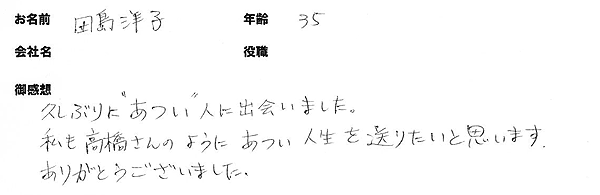 お名前 田島洋子 年齢 35
会社名 役職
御感想
久しぶりに"あつい"人に出会いました。
私も高橋さんのようにあつい人生を送りたいと思います.
ありがとうございました.